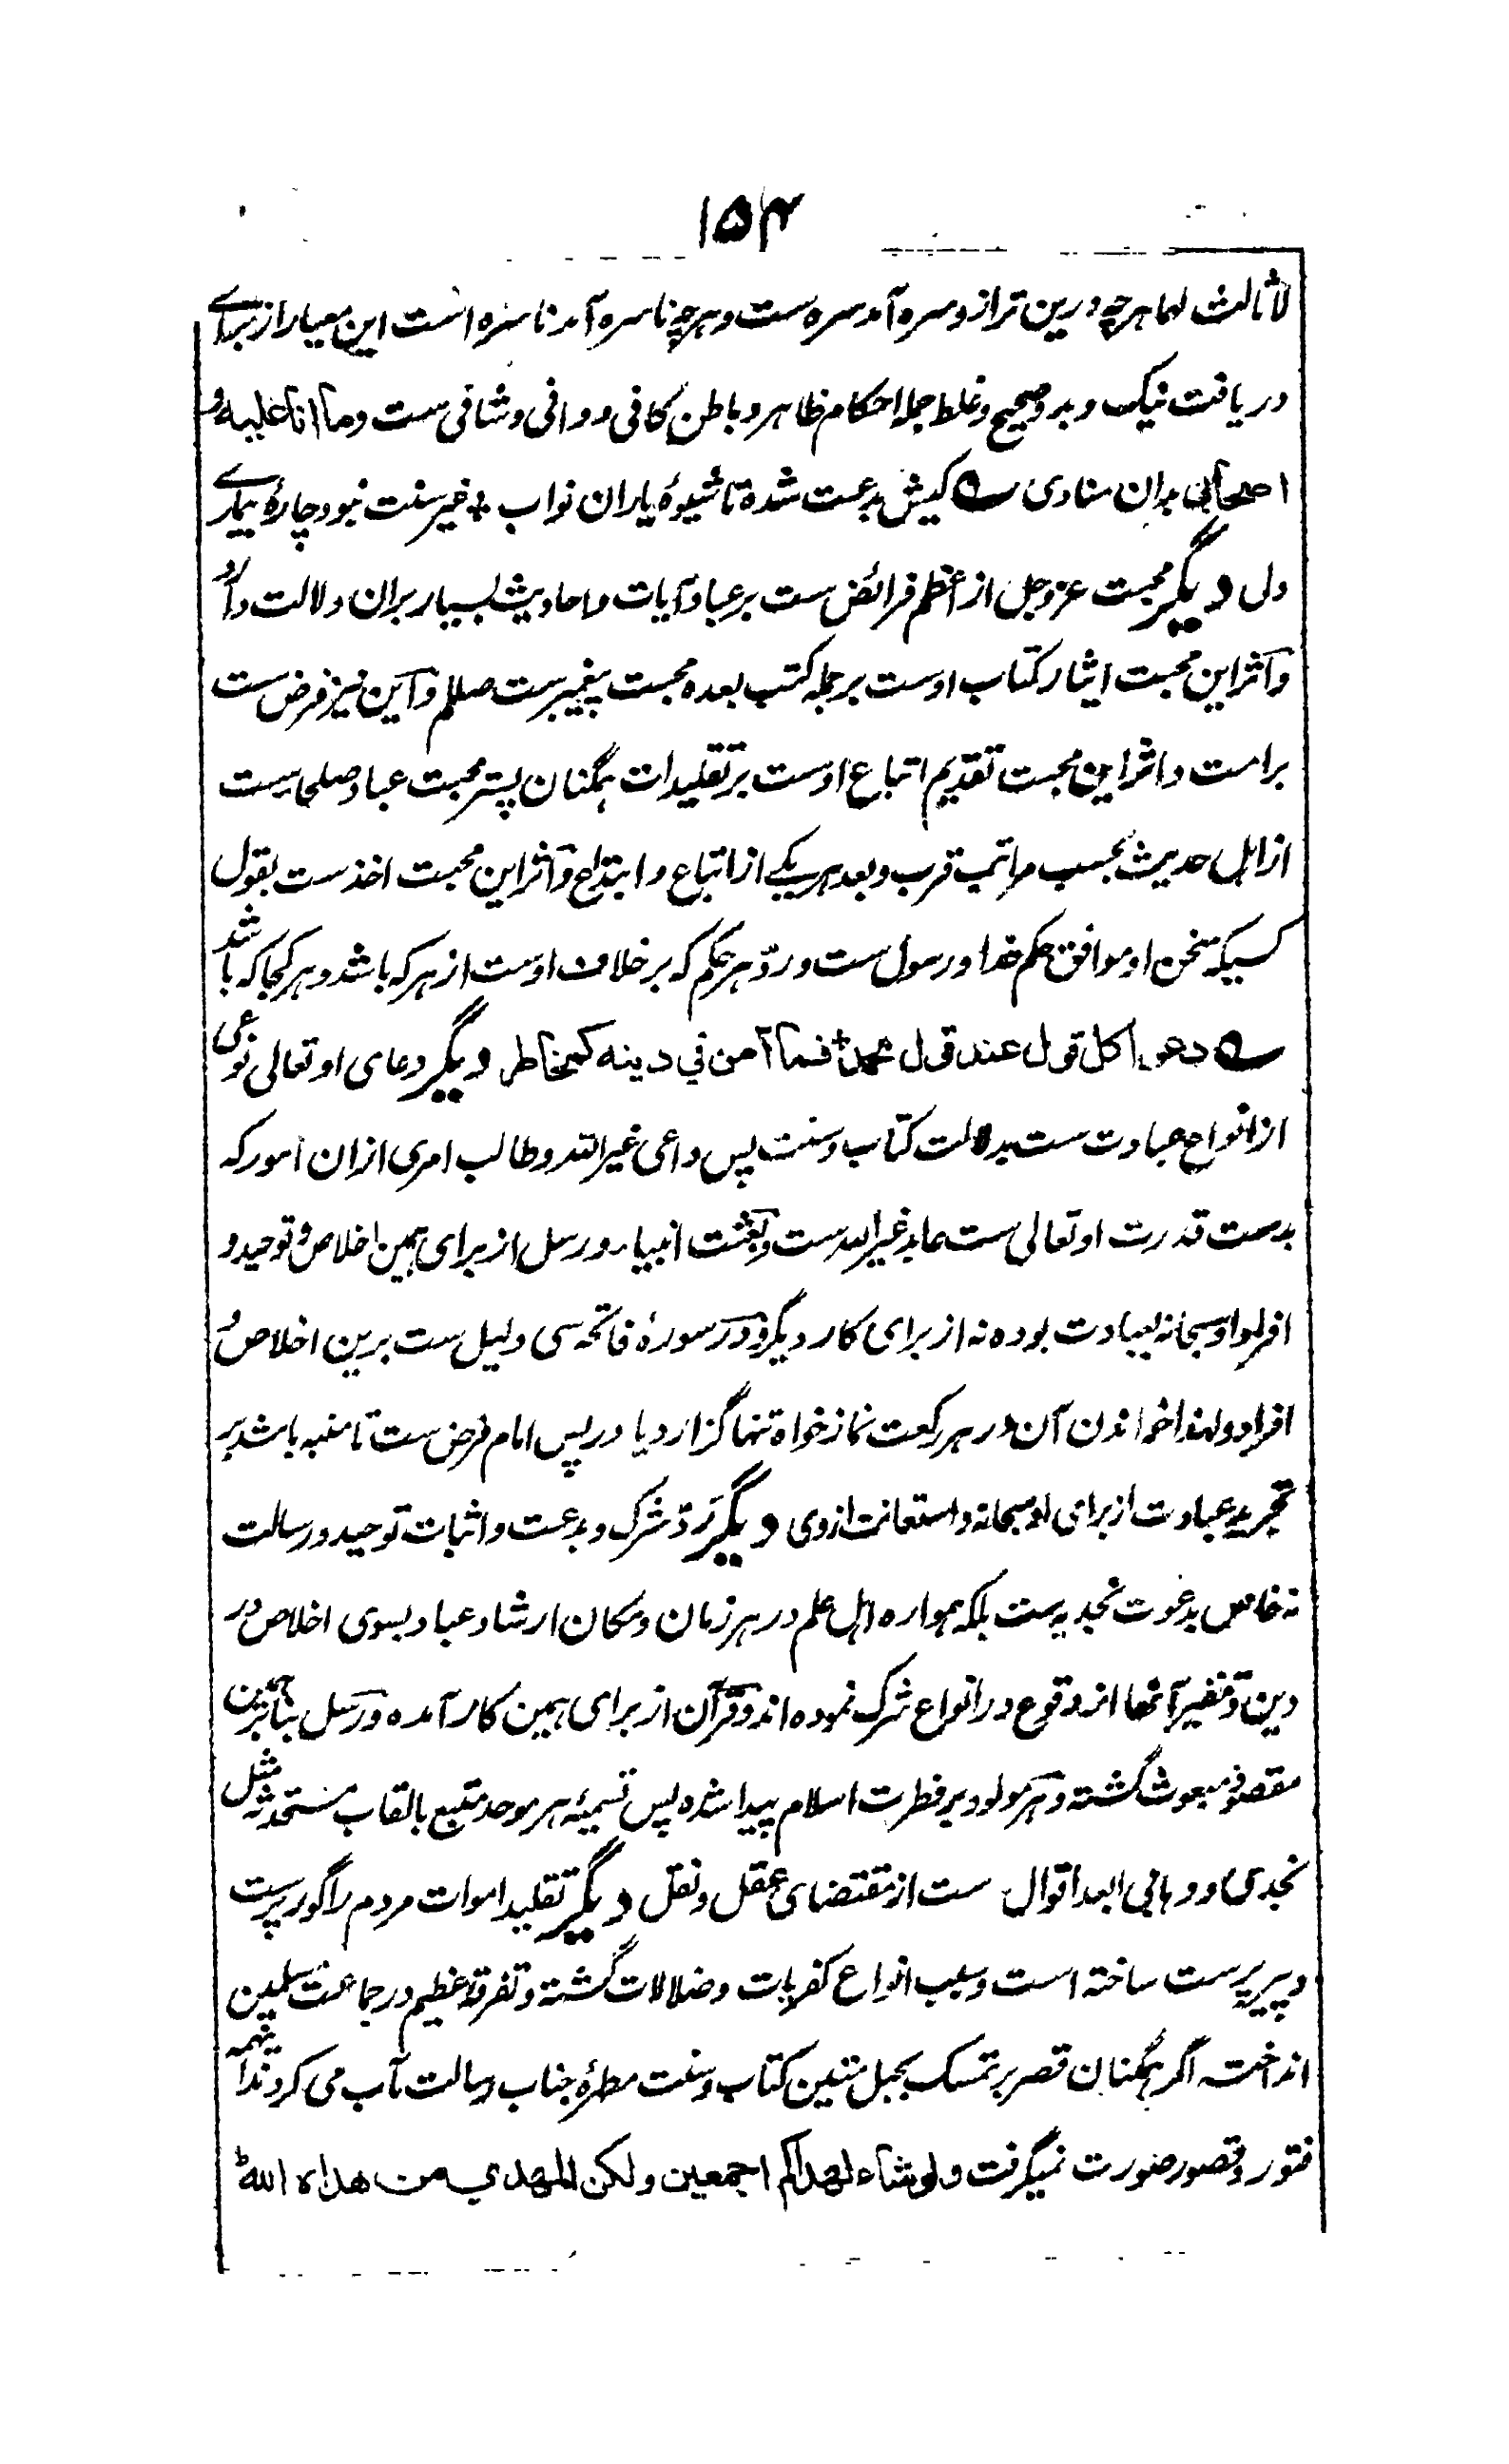 ۱۵۴
لا ثالث لهما هرچه درین ترازو سره آمد سره ست و هرچه ناسره آمد ناسره است این معیار از برای
دریافت نیک و بد و صحیح و غلط جمله احکام ظاهر و باطن کافی و وافی و شافی ست و ما انا علیه و
اصحابی بدان منادی ؎ کیش بدعت شده تا شیوۀ یاران نواب ٭ غیر سنت نبود چارۀ بیماری
دل دیگر محبت عز وجل از اعظم فرائض ست بر عباد و آیات و احادیث بسیار بران دلالت دارد
و اثر این محبت ایثار کتاب اوست بر جمله کتب بعده محبت پیغمبرست صللم و این نیز فرض ست
بر امت و اثر این محبت تقدیم اتباع اوست بر تقلیدات همگنان پستر محبت عباد صلحاست
از اهل حدیث بحسب مراتب قرب و بعد هر یکے از اتباع و ابتداع و اثر این محبت اخذ ست بقول
کسیکه سخن او موافق حکم خدا و رسول ست و ردّ هر حکم که بر خلاف اوست از هر که باشد و هر کجا که باشد
؎ دعوا کل قول عند قول محمد ٭ فما آمن في دینه کمخاطر دیگر دعای او تعالی نوعی
از انواع عبادت ست بدلالت کتاب و سنت پس داعی غیر الله و طالب امری ازان امور که
بدست قدرت او تعالی ست عابد غیر الله ست و بعثت انبیاء و رسل از برای همین اخلاص و توحید و
افراد او سبحانه بعبادت بوده نه از برای کار دیگر و در سورۀ فاتحه سی دلیل ست برین اخلاص و
افراد و لهذا خواندن آن در هر رکعت نماز خواه تنها گزارد یا در پس امام فرض ست تا منبه باشد بر
تجرید عبادت از برای او سبحانه و استعانت ازوی دیگر ردّ شرک و بدعت و اثبات توحید و رسالت
نه خاص بدعوت نجدیه ست بلکه همواره اهل علم در هر زمان و مکان ارشاد عباد بسوی اخلاص در
دین و تنفیر آنها از وقوع در انواع شرک نموده اند و قرآن از برای همین کار آمده و رسل بنابر همین
مقصود مبعوث گشته و هر مولود بر فطرت اسلام پیدا شده پس تسمیۀ هر موحد متبع بالقاب مستحدثه مثل
نجدی و وهابی ابعد اقوال ست از مقتضای عقل و نقل دیگر تقلید اموات مردم را گور پرست
و پیر پرست ساخته است و سبب انواع کفریات و ضلالات گشته و تفرقۀ عظیم در جماعت مسلمین
انداخته اگر همگنان قصر بر تمسک بحبل متین کتاب و سنت مطهرۀ جناب رسالت مآب می کردند اینهمه
فتور و قصور صورت نمیگرفت ولو شاء لهداکم اجمعین ولکن المهدي من هداه الله